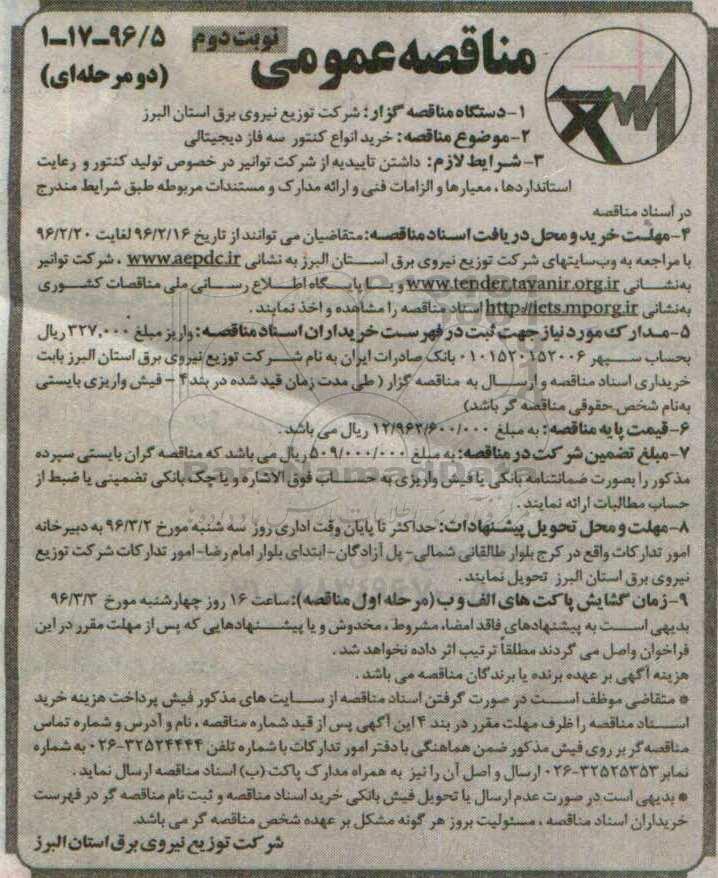 مناقصه عمومی نوبت دوم ۹۶/۵-۱۷-۱
(دو مرحله‌ای)
۱- دستگاه مناقصه گزار: شرکت توزیع نیروی برق استان البرز
۲- موضوع مناقصه: خرید انواع کنتور سه فاز دیجیتالی
۳- شرایط لازم: داشتن تاییدیه از شرکت توانیر در خصوص تولید کنتور و رعایت
استانداردها، معیارها و الزامات فنی و ارائه مدارک و مستندات مربوطه طبق شرایط مندرج
در اسناد مناقصه
۴- مهلت خرید و محل دریافت اسناد مناقصه: متقاضیان می توانند از تاریخ ۹۶/۲/۱۶ لغایت ۹۶/۲/۲۰
با مراجعه به وب‌سایتهای شرکت توزیع نیروی برق استان البرز به نشانی www.aepdc.ir ، شرکت توانیر
به‌نشانی www.tender.tavanir.org.ir و یا پایگاه اطلاع رسانی ملی مناقصات کشوری
به‌نشانی http://iets.mporg.ir اسناد مناقصه را مشاهده و اخذ نمایند.
۵- مدارک مورد نیاز جهت ثبت در فهرست خریداران اسناد مناقصه: واریز مبلغ ۳۲۷,۰۰۰ ریال
بحساب سپهر ۰۱۰۱۵۲۰۱۵۲۰۰۶ بانک صادرات ایران به نام شرکت توزیع نیروی برق استان البرز بابت
خریداری اسناد مناقصه و ارسال به مناقصه گزار ( طی مدت زمان قید شده در بند ۴ – فیش واریزی بایستی
به‌نام شخص حقوقی مناقصه گر باشد)
۶- قیمت پایه مناقصه: به مبلغ ۱۲/۹۶۲/۶۰۰/۰۰۰ ریال می باشد.
۷- مبلغ تضمین شرکت در مناقصه: به مبلغ ۵۰۹/۰۰۰/۰۰۰ ریال می باشد که مناقصه گران بایستی سپرده
مذکور را بصورت ضمانتنامه بانکی یا فیش واریزی به حساب فوق الاشاره و یا چک بانکی تضمینی یا ضبط از
حساب مطالبات ارائه نمایند.
۸- مهلت و محل تحویل پیشنهادات: حداکثر تا پایان وقت اداری روز سه شنبه مورخ ۹۶/۳/۲ به دبیرخانه
امور تدارکات واقع در کرج بلوار طالقانی شمالی- پل آزادگان- ابتدای بلوار امام رضا- امور تدارکات شرکت توزیع
نیروی برق استان البرز تحویل نمایند.
۹- زمان گشایش پاکت های الف و ب (مرحله اول مناقصه): ساعت ۱۶ روز چهارشنبه مورخ ۹۶/۳/۳
بدیهی است به پیشنهادهای فاقد امضاء، مشروط، مخدوش و یا پیشنهادهایی که پس از مهلت مقرر در این
فراخوان واصل می گردند مطلقاً ترتیب اثر داده نخواهد شد.
هزینه آگهی بر عهده برنده یا برندگان مناقصه می باشد.
* متقاضی موظف است در صورت گرفتن اسناد مناقصه از سایت های مذکور فیش پرداخت هزینه خرید
اسناد مناقصه را ظرف مهلت مقرر در بند ۴ این آگهی پس از قید شماره مناقصه، نام و آدرس و شماره تماس
مناقصه‌گر بر روی فیش مذکور ضمن هماهنگی با دفتر امور تدارکات با شماره تلفن ۳۲۵۲۴۴۴۴-۰۲۶ به شماره
نمابر ۳۲۵۲۵۳۵۳-۰۲۶ ارسال و اصل آن را نیز به همراه مدارک پاکت (ب) اسناد مناقصه ارسال نماید.
* بدیهی است در صورت عدم ارسال یا تحویل فیش بانکی خرید اسناد مناقصه و ثبت نام مناقصه گر در فهرست
خریداران اسناد مناقصه، مسئولیت بروز هر گونه مشکل بر عهده شخص مناقصه گر می باشد.
شرکت توزیع نیروی برق استان البرز
ParsNamadData